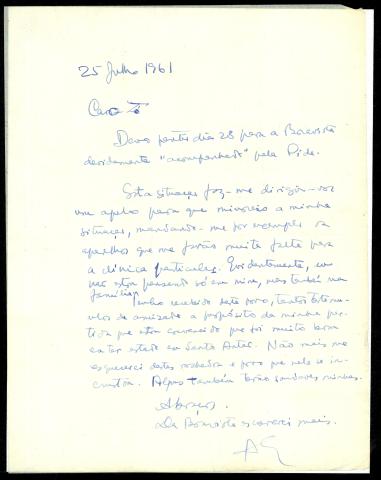 25 Julho 1961
Caro Zé
Devo partir dia 28 para a Boavista
devidamente "acompanhado" pela Pide.
Esta situação faz-me dirigir-vos
um apelo para que minoreis a minha
situação, mandando-me por exemplo os
aparelhos que me farão muita falta para
a clínica particular. Evidentemente, eu
não estou pensando só em mim, mas também na
família.
Tenho recebido deste povo, tantos testemu-
nhos de amizade a propósito da minha par-
tida que estou convencido que foi muito bom
eu ter estado em Santo Antão. Não mais me
esquecerei destes rochedos e povo que neles se in-
crusta. Alguns também terão saudades minhas.
Abraços.
Da Boavista escreverei mais.